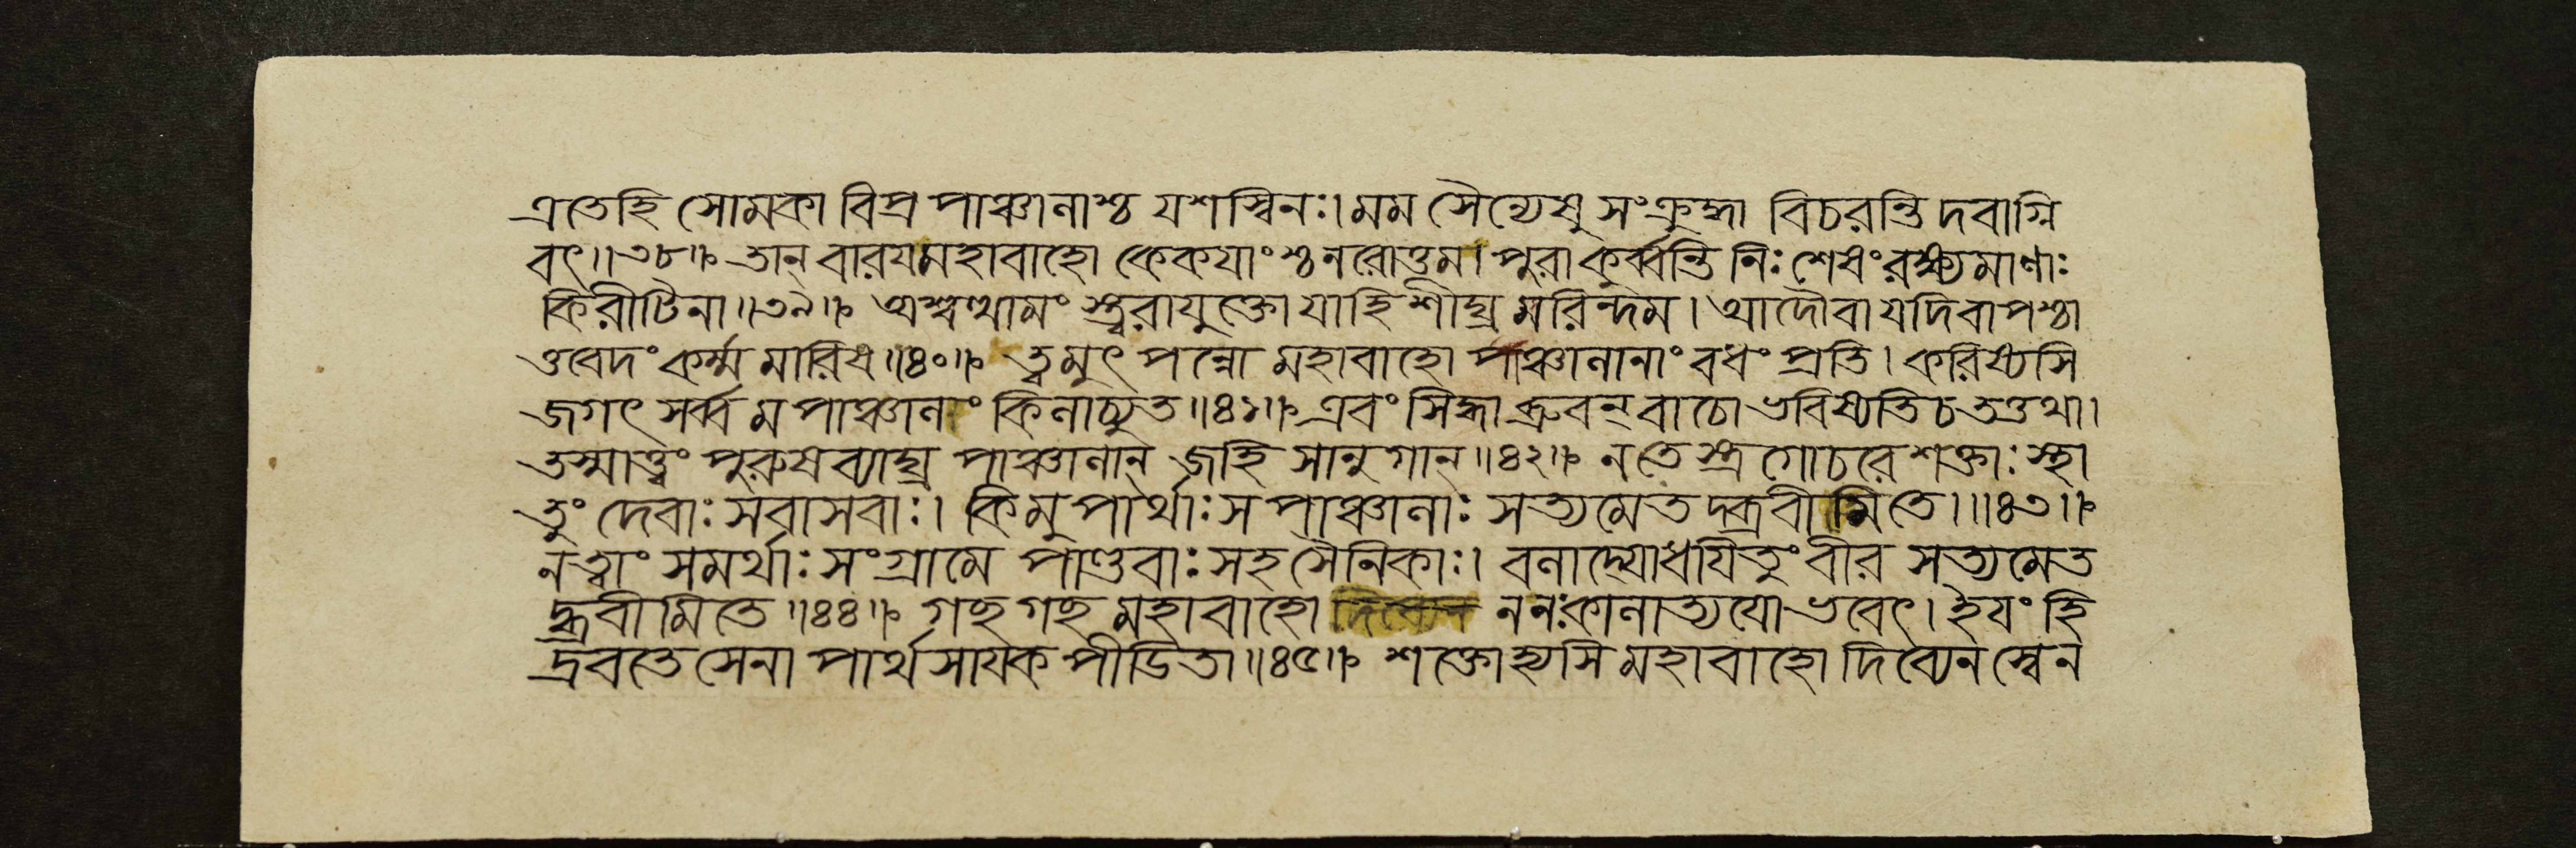 এতেহি সোমকা বিপ্র পাঞ্চালাশ্চ যশস্বিনঃ। মম সৈন্যেষু সংক্রুদ্ধা বিচরন্তি দবাগ্নি
বৎ॥৩৮॥ তান্ বারয মহাবাহো কেকযাংশ্চ নরোত্তম। পুরা কুর্ব্বন্তি নিঃশেষং রক্ষ্যমাণাঃ
কিরীটিনা॥৩৯॥ অশ্বত্থামং স্ত্বরাযুক্তো যাহি শীঘ্র মরিন্দম। আদৌবা যদিবা পশ্চা
ত্তবেদং কর্ম্ম মারিষ॥৪০॥ ত্বমুৎ পন্নো মহাবাহো পাঞ্চালানাং বধং প্রতি। করিষ্যসি
জগৎ সর্ব্ব ম পাঞ্চালাং কিলাচ্যুত॥৪১॥ এবং সিদ্ধা ব্রুবন্ বাচো ভবিষ্যতিচ তত্তথা।
তস্মাত্ত্বং পুরুষব্যাঘ্র পাঞ্চালান্ জহি সানুগান্॥৪২॥ ন তে স্ত্র গোচরে শক্তাঃ স্থা
তুং দেবাঃ সবাসবাঃ। কিমু পার্থাঃ স পাঞ্চালাঃ সত্যমেত দব্রবীমি তে।॥৪৩॥
ন ত্বাং সমর্থাঃ সংগ্রামে পাণ্ডবাঃ সহ সৈনিকাঃ। বলাদ্যোধযিতুং বীর সত্যমেত
দ্ব্রবীমি তে॥৪৪॥ গচ্ছ গচ্ছ মহাবাহো ননঃকালাত্যযো ভবেৎ। ইযং হি
দ্রবতে সেনা পার্থ সাযক পীডিতা॥৪৫॥ শক্তোহ্যসি মহাবাহো দিব্যেন স্বেন